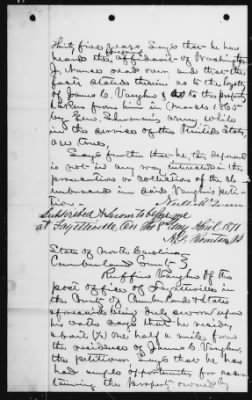 thirty five years, Says that he has
heard the affidavit of Washington
J. read over and that the
facts stated therein as to the loyalty
of James C. Vaughn & as to the property
taken from him in March 1865
by Gen. Sherman's army while
in the service of the United States
are true,
Says further that he, this deponent
is not in any way interested in the
prosecution or collection of the claim
embraced in said Vaughn's peti-
tion.
Subscribed & sworn to before me
at Fayetteville, on the 8 day April 1871
State of North Carolina
Cumberland County
Ruffin Vaughn of the
post office of Fayetteville in
the County of Cumberland & State
aforesaid being duly sworn upon
his oath says that he resides
about (½) one half a mile from
the residence of James C. Vaughn,
the petitioner Says that he has
had ample opportunities for ascer-
taining the property owned by